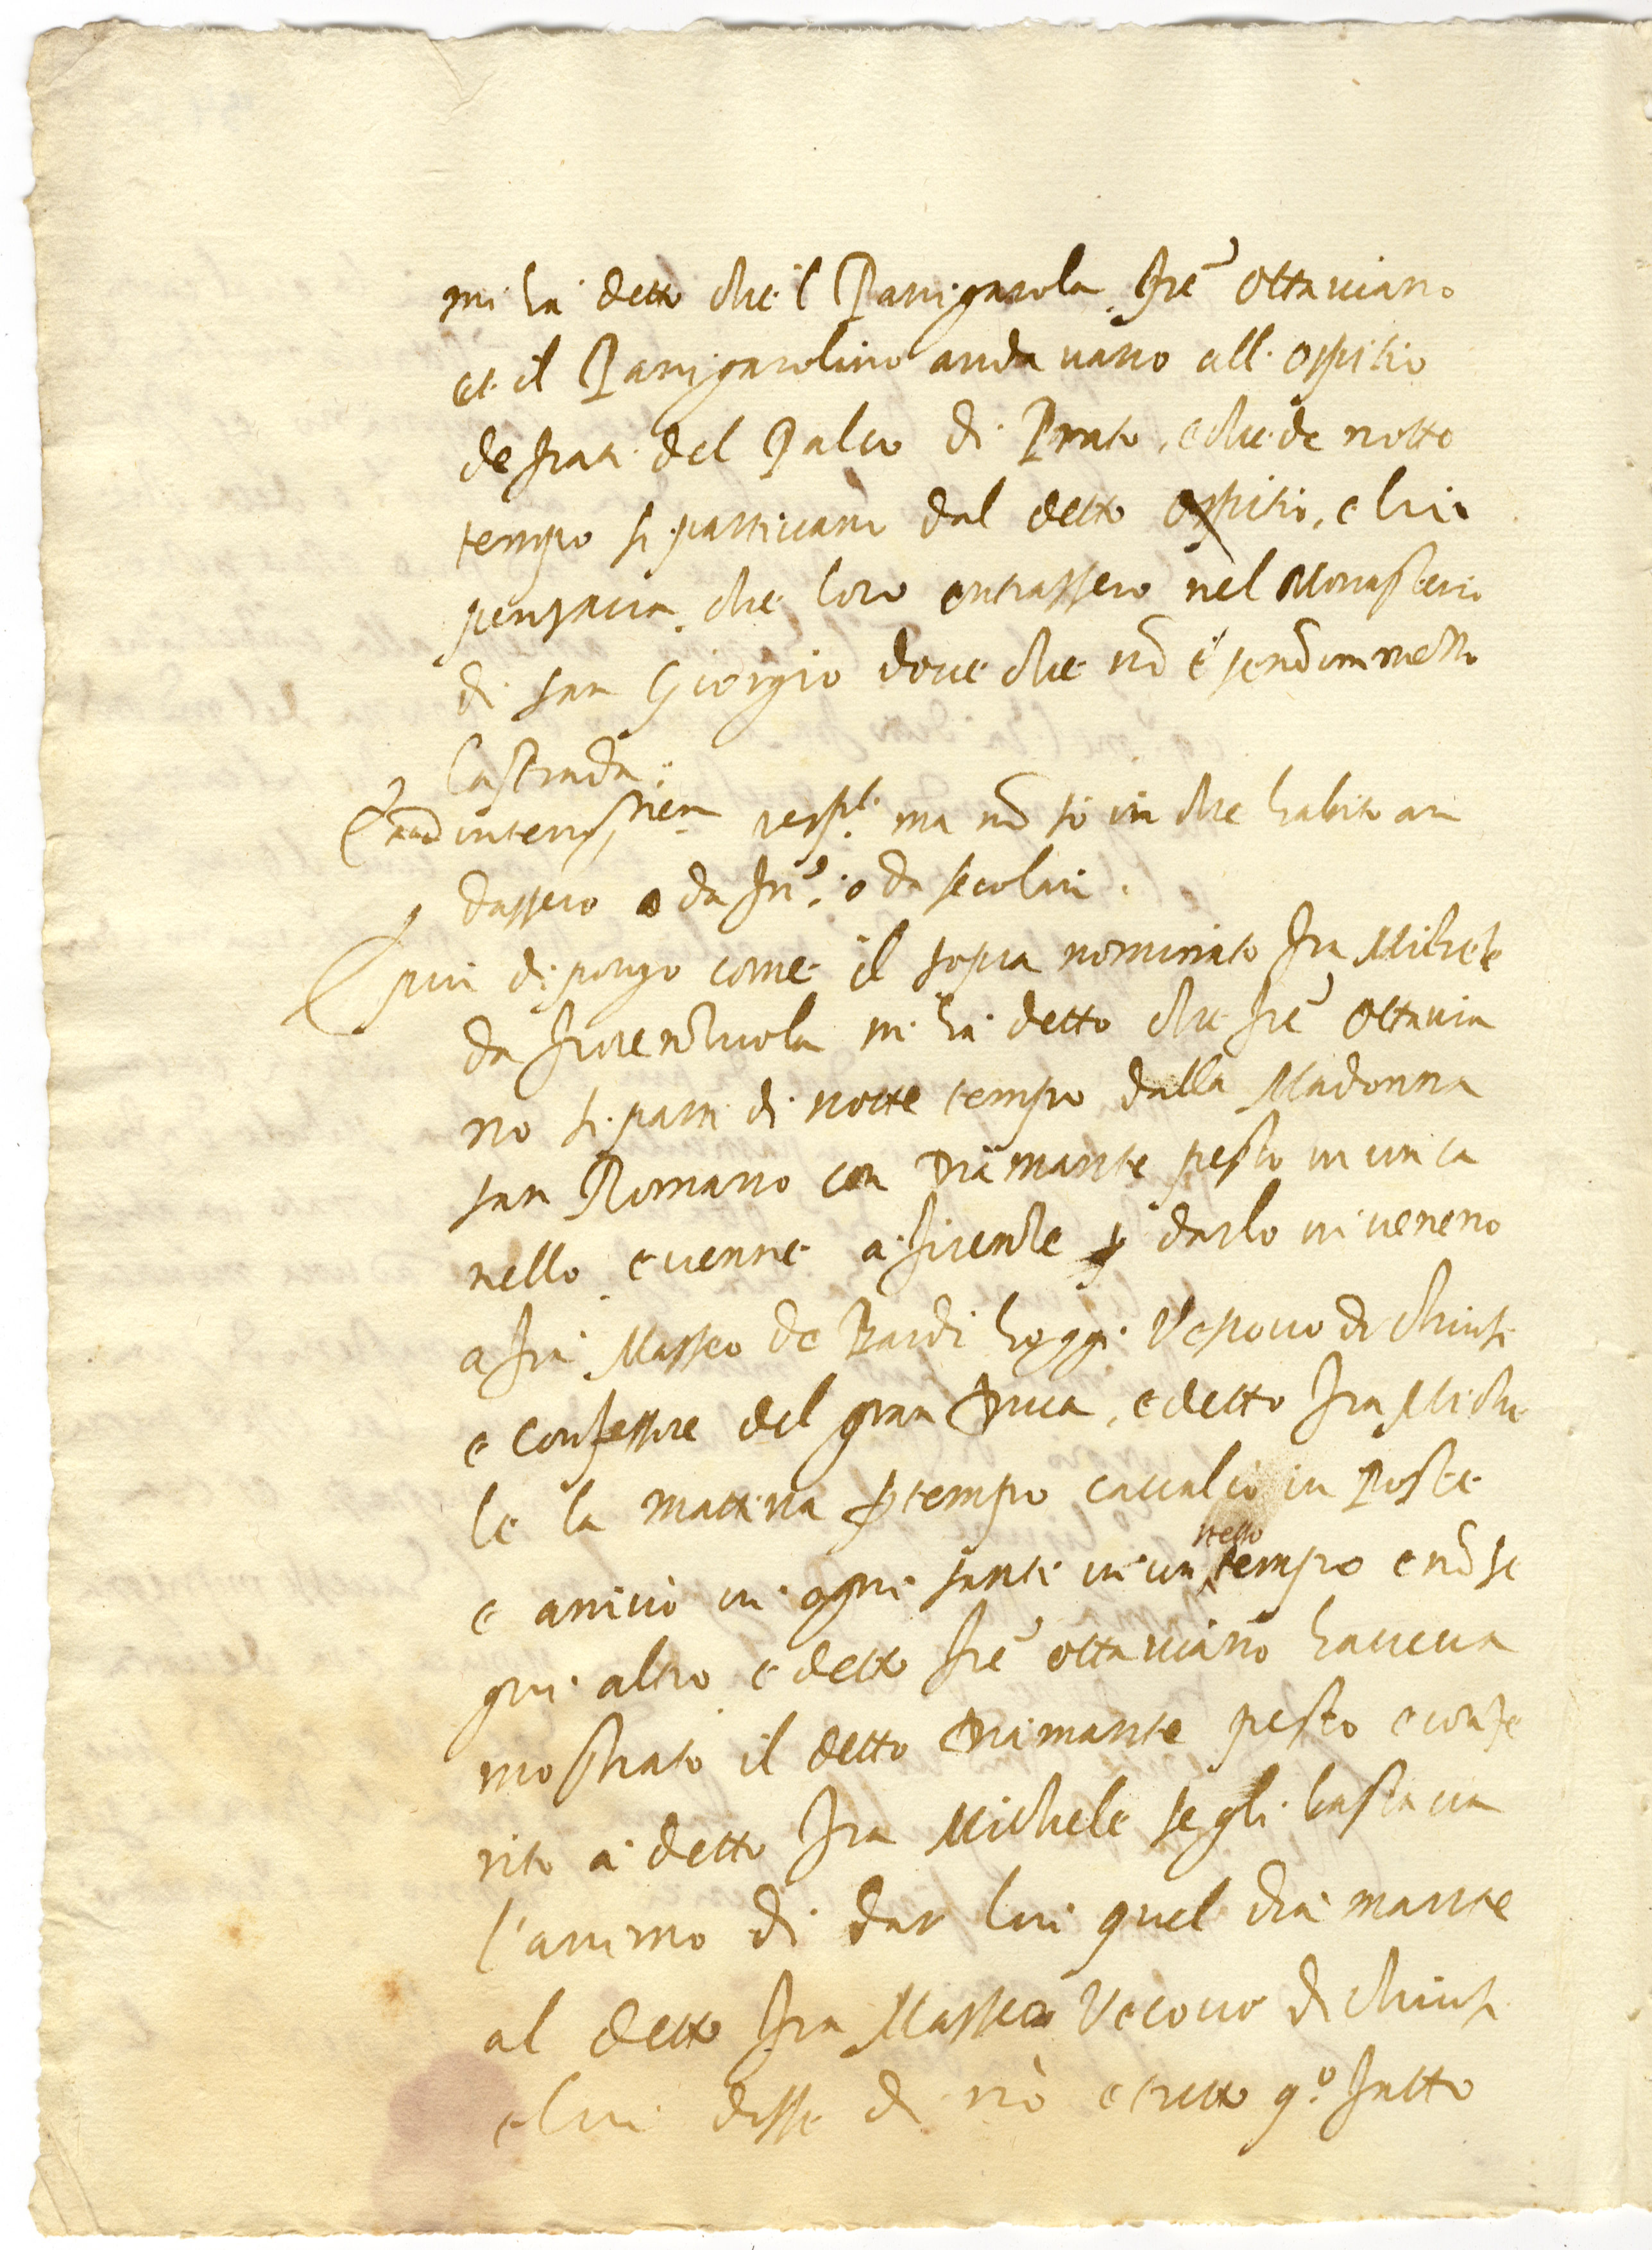 mi hà detto che 'l Panigarola, fre Ottauiano
et il Panigarolino andauano all ospitio
de frati del Palco di Prato, e che de notte
tempo si partiuano dal detto ospitio, e lui
pensaua, che loro entrassero nel Monasterio
di san Giorgio doue che nõ è senõ in mezzo
la strada:
Et ad interr.nem resp.t ma nõ sò in che habito an
dassero o da fri, o da secolari.
E piu dipongo come il sopra nominato fra Michele
da fiorenzuola m'hà detto che fre Ottauia
no si parti di notte tempo dalla Madonna
san Romano con Diamante pesto in un ca
nello, e uenne a firenze p darlo in ueneno
a frà Masseo de Bardi hoggi Vescouo di Chiusi
e confessore del gran Duca, e detto fra Miche
le la mattina p tempo caualcò in Poste
e arriuò in ogni santi in un stesso tempo e nõ se
gui altro e detto fre Ottauiano haueua
mostrato il detto Diamante pesto e confe
rito à detto fra Michele se gli bastaua
l'animo di dar lui quel Diamante
al detto fra Masseo Vecouo di Chiusi
e lui disse di nò e tutto q.o fatto